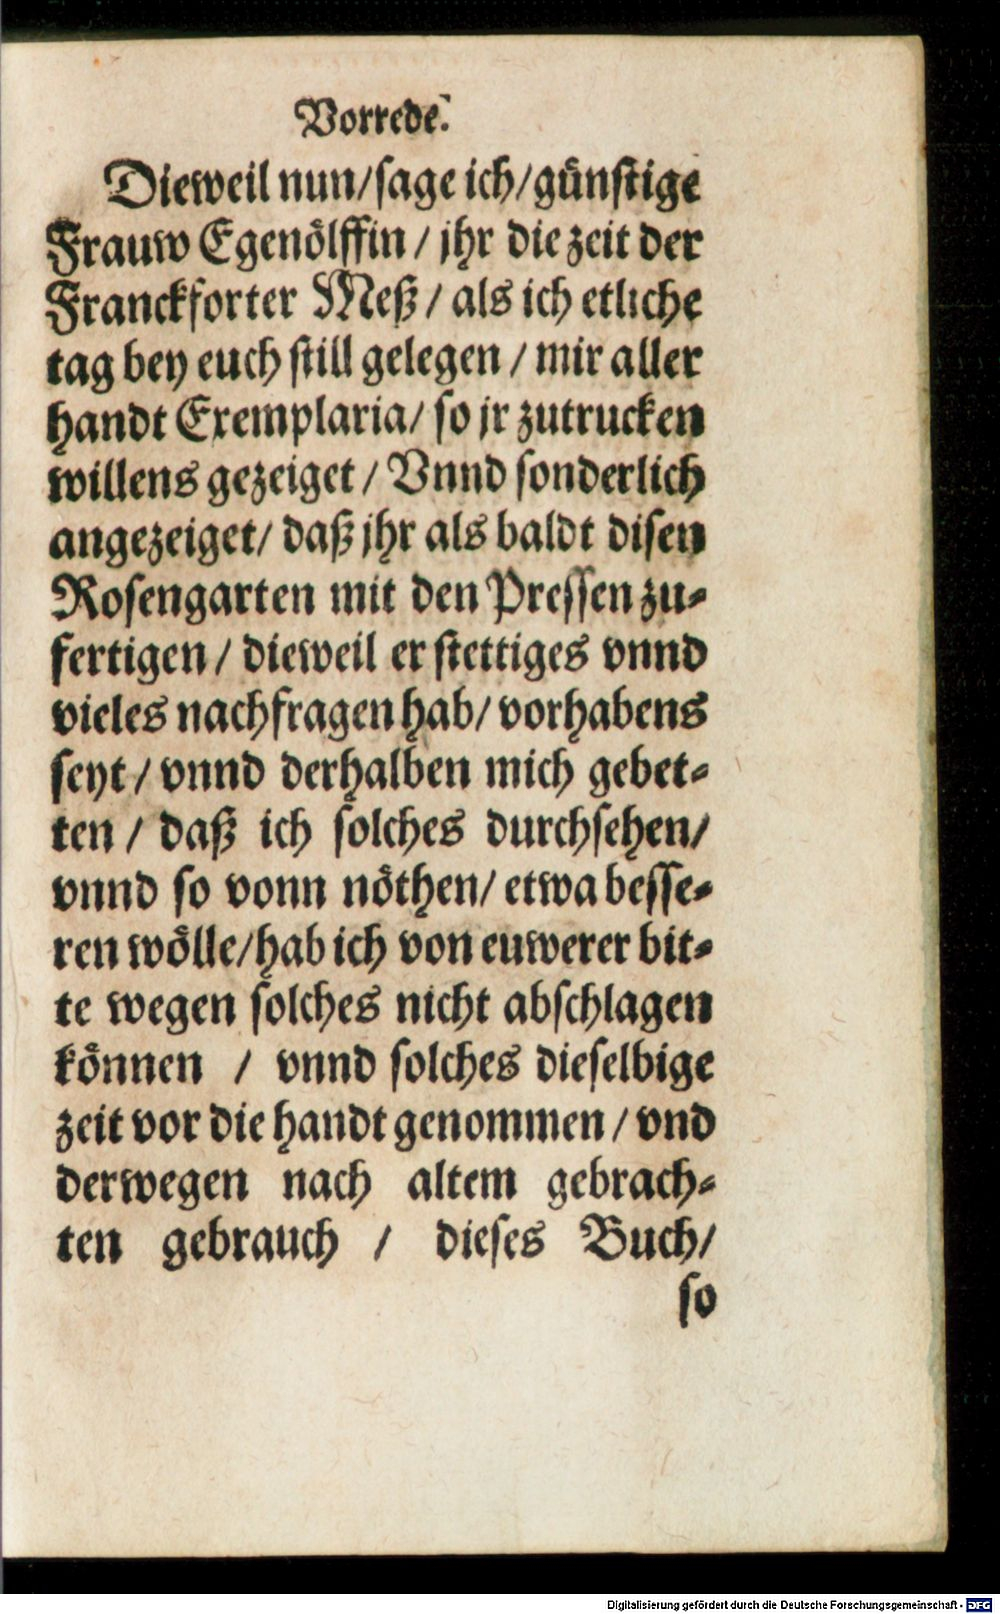 Vorrede.
Dieweil nun/sage ich/günstige
Frauw Egenölffin / jhr die zeit der
Franckforter Meß / als ich etliche
tag bey euch still gelegen / mir aller
handt Exemplaria/ so jr zutrucken
willens gezeiget / Vnnd sonderlich
angezeiget/ daß jhr als baldt disen
Rosengarten mit den Pressen zu-
fertigen / dieweil er stettiges vnnd
vieles nachfragen hab/ vorhabens
seyt / vnnd derhalben mich gebet-
ten / daß ich solches durchsehen/
vnnd so vonn nöthen/ etwa besse-
ren wölle/hab ich von euwerer bit-
te wegen solches nicht abschlagen
können / vnnd solches dieselbige
zeit vor die handt genommen / vnd
derwegen nach altem gebrach-
ten gebrauch / dieses Buch/
so
Digitalisierung gefördert durch die Deutsche Forschungsgemeinschaft - DFG